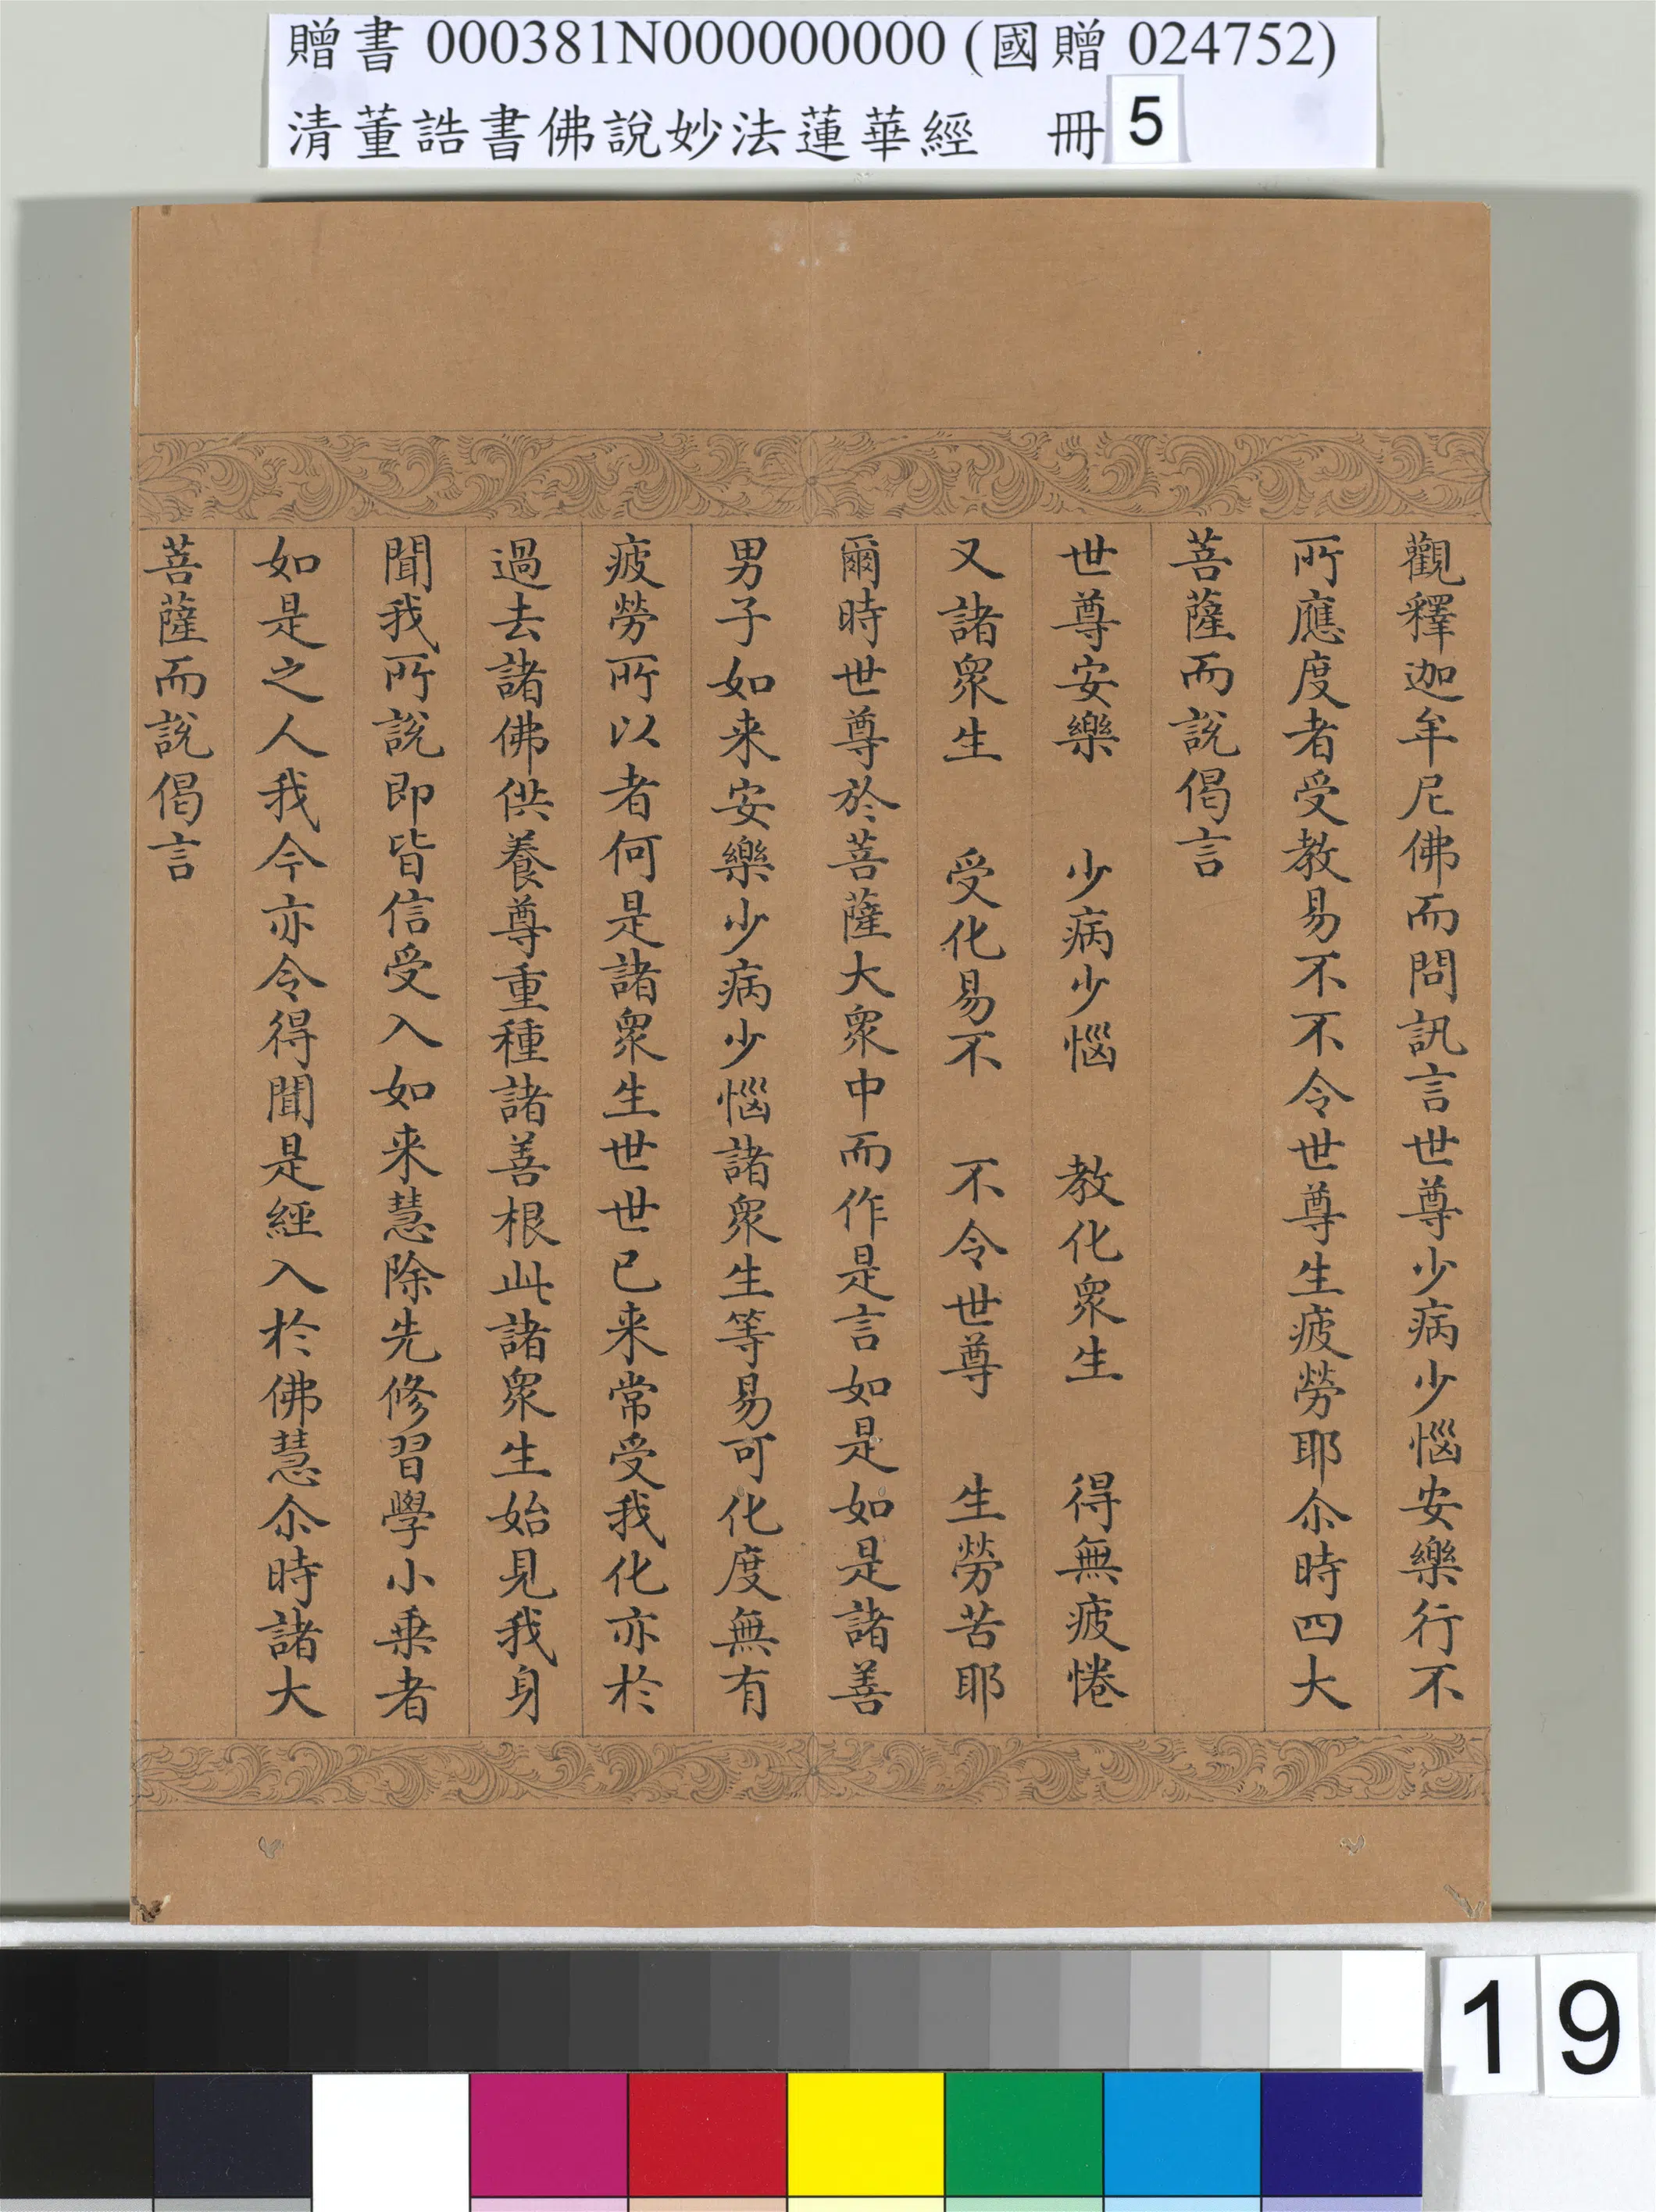 贈書 000381N000000000 (國贈 024752)
清董誥書佛說妙法蓮華經 冊 5
觀釋迦牟尼佛而問訊言世尊少病少惱安樂行不
所應度者受教易不不令世尊生疲勞耶尒時四大
菩薩而說偈言
世尊安樂 少病少惱 教化眾生 得無疲惓
又諸眾生 受化易不 不令世尊 生勞苦耶
爾時世尊於菩薩大眾中而作是言如是如是諸善
男子如来安樂少病少惱諸眾生等易可化度無有
疲勞所以者何是諸眾生世世已来常受我化亦於
過去諸佛供養尊重種諸善根此諸眾生始見我身
聞我所說即皆信受入如来慧除先修習學小乗者
如是之人我今亦令得聞是經入於佛慧尒時諸大
菩薩而說偈言
19